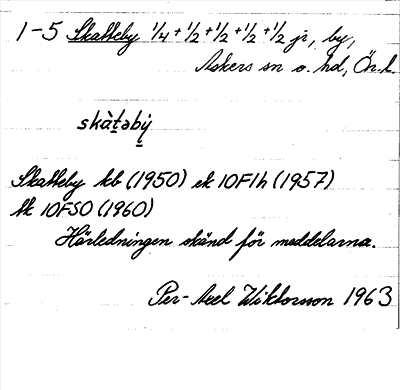 1-5 Skatteby 1/4 + 1/2 + 1/2 + 1/2 + 1/2 jr, by,
Askers sn o. hd, Ör. l.
skàtəbý
Skatteby kb (1950) ek 10F1h (1957)
tk 10FSO (1960)
Härledningen okänd för meddelarna.
Per-Axel Wiktorsson 1963